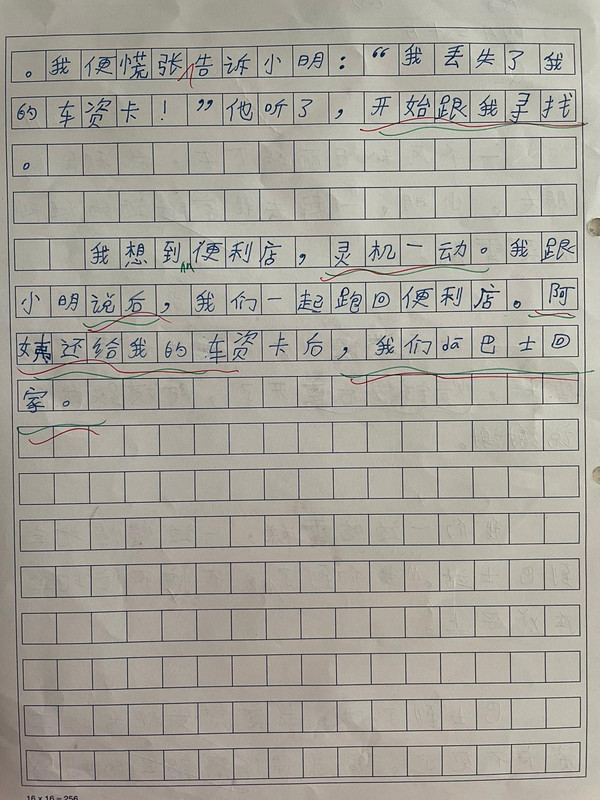 。我便慌张告诉小明：“我丢失了我
的车资卡！”他听了，开始跟我寻找
。
我想到便利店，灵机一动。我跟
小明说后，我们一起跑回便利店。阿
姨还给我的车资卡后，我们dā巴士回
家。
16 x 16 = 256